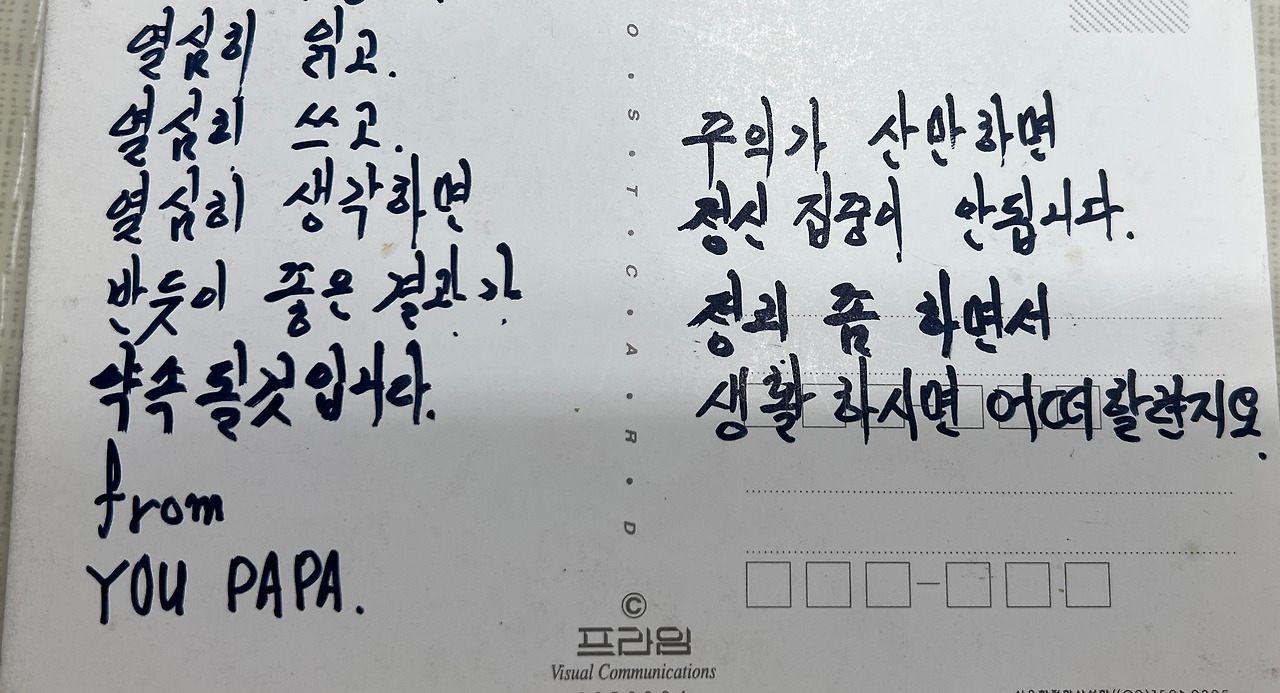 열심히 읽고.
열심히 쓰고.
열심히 생각하면
반듯이 좋은 결과가
약속 될것 입니다.
from
YOU PAPA.
POSTCARD
주의가 산만하면
정신 집중이 안됩니다.
정리 좀 하면서
생활 하시면 어떠할런지요.
©
프라임
Visual Communications